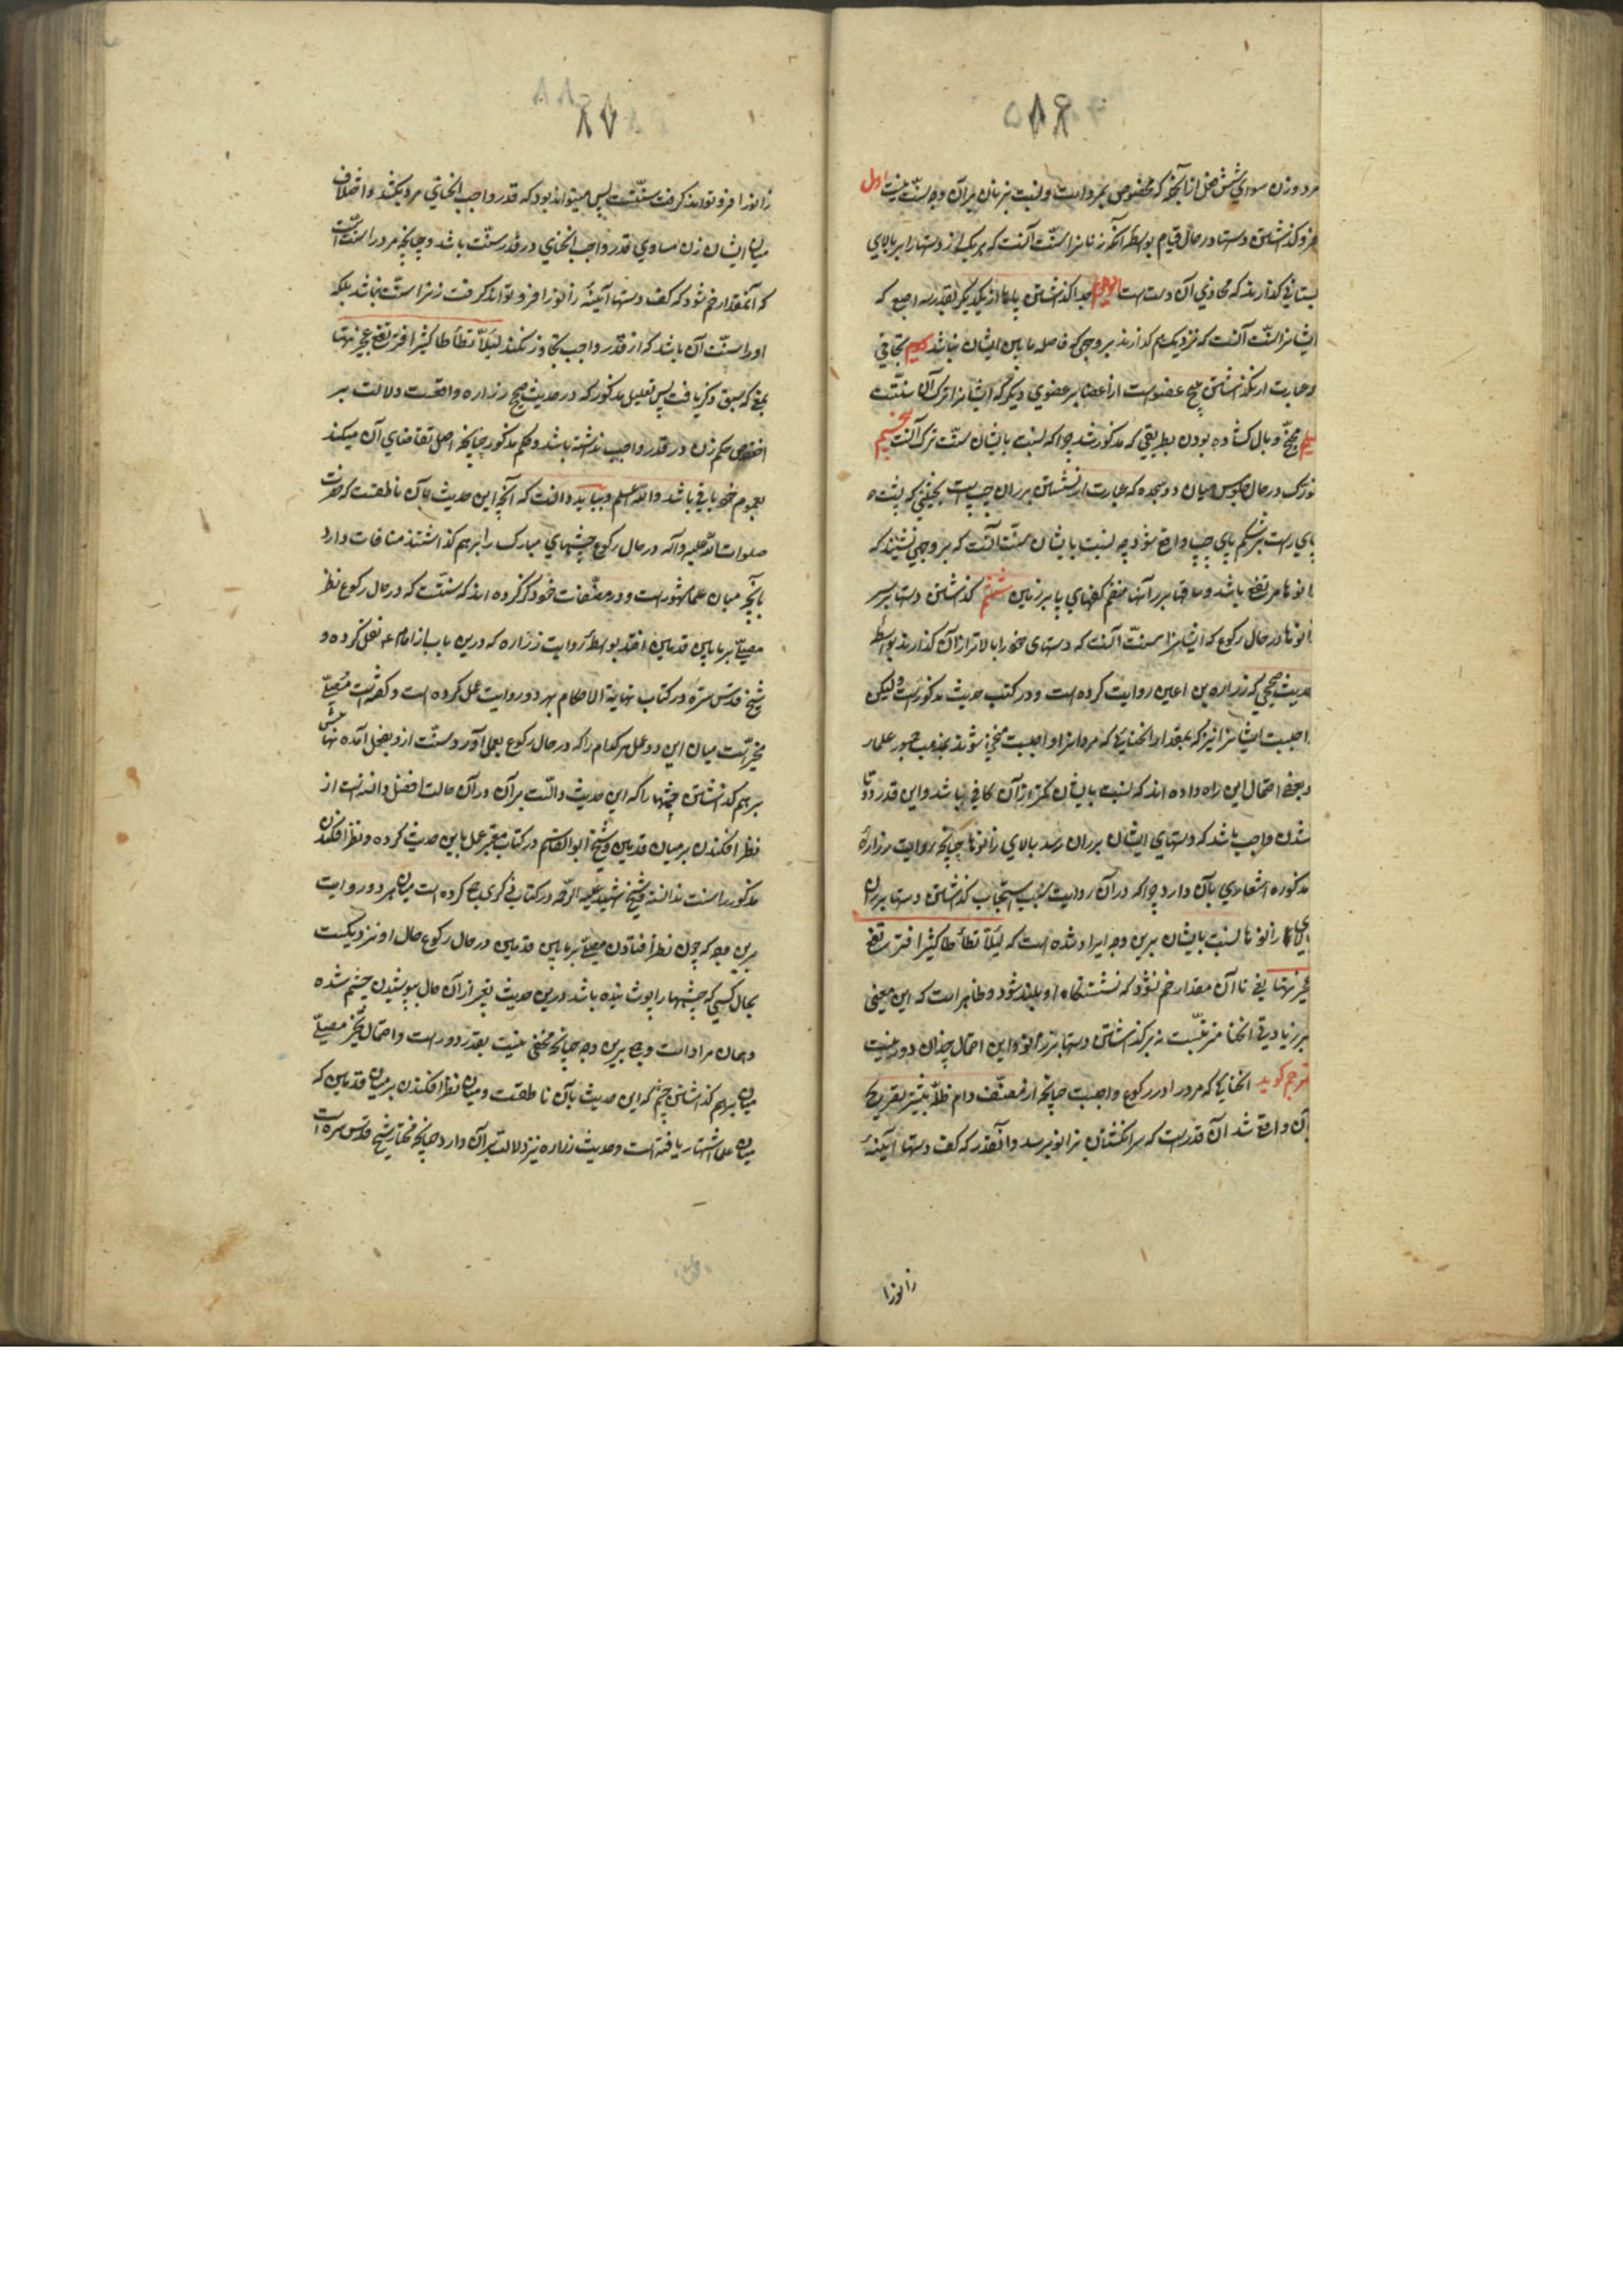 مرد و زن سوای شش خصل از آنچه که مخصوص بمرد است و نسبت بزنان بر آن وجه سنت نیست اول
فرو گذاشتن دستها در حال قیام بواسطه آنکه زنانرا سنت آنست که هر یک از دستها را بر بالای
پستانی گذارند که محاذی آن دست است دویم جدا گذاشتن پاها از یکدیگر بقدر سه اصبع که
ایشانرا سنت آنست که نزدیک هم گذارند بر وجهی که فاصله مابین ایشان نباشد سیم تجافی
و عبارت از نگذاشتن هیچ عضو است از اعضا بر عضوی دیگر که ایشانرا ترک آن سنتست
مجنح و بال گشاده بودن بطریقی که مذکور شد چرا که نسبت بایشان سنت ترک آنست پنجم
تورک در حال جلوس میان دو سجده که عبارت از نشستن بر ران چپ است بحیثی که پشت
پای راست بر شکم پای چپ واقع شود چه نسبت بایشان سنت آنست که بر وجهی نشینند که
زانوها مرتفع باشد و ساقها بر رانها منضم کفهای پا بر زمین ششم گذاشتن دستها بر سر
زانوها در حال رکوع که ایشانرا سنت آنست که دستهای خود را بالاتر از آن گذارند بواسطه
حدیث صحیحی که زراره بن اعین روایت کرده است و در کتب حدیث مذکور است و لیکن
واجبست ایشانرا نیز که بمقدار انحنایی که مردانرا واجبست منحنی شوند بمذهب جمهور علما
و بعضی احتمال این راه داده اند که نسبت بایشان کمتر از آن کافی باشد و این قدر دوتا
شدن واجب باشد که دستهای ایشان بر ران رسد بالای زانوها چنانچه روایت زراره
مذکوره اشعاری بآن دارد چرا که در آن روایت سبب استحباب گذاشتن دستها بر ران
بالای زانوها نسبت بایشان برین وجه ایراد شده است که لئلا تطأطأ کثیرا فترتفع
عجیزتها یعنی تا آن مقدار خم نشود که نشستنگاه او بلند شود و ظاهر است که این معنی
بر زیادتی انحنا مترتبست نه بر گذاشتن دستها بر زانو و این احتمال چندان دور نیست
مترجم گوید انحنایی که مرد را در رکوع واجبست چنانچه از مصنف دام ظله بیشتر تصریح
بآن واقع شد آن قدر است که سر انگشتان بزانو برسد و آنقدر که کف دستها آینهٔ
زانو را
زانو را فرو تواند گرفت سنتست پس میتواند بود که قدر واجب انحنای مرد یکند و اختلاف
میان ایشان زن مساوی قدر واجب انحنای در قدر سنت باشد و چنانچه مرد را سنت است
که آنمقدار خم شود که کف دستها آینهٔ زانو را فرو تواند گرفت زنرا سنت نباشد بلکه
او را سنت آن باشد که از قدر واجب تجاوز نکند لئلا تطأطأ کثیرا فترتفع عجیزتها
بمعنی که سبق ذکر یافت پس تعلیل مذکور که در حدیث صحیح زراره واقعست دلالت بر
اختصاص حکم زن در قدر واجب نداشته باشد و حکم مذکور چنانچه اصل تقاضای آن میکند
بعموم خود باقی باشد و الله اعلم و بباید دانست که آنچه این حدیث بآن ناطقست که حضرت
صلوات الله علیه و آله در حال رکوع چشمهای مبارک را بر هم گذاشتند منافات دارد
بآنچه میان علما مشهور است و در مصنفات خود ذکر کرده اند که سنتست که در حال رکوع نظر
مصلی بر مابین قدمین افتد بواسطه روایت زراره که درین باب از امام ع نقل کرده و
شیخ قدس سره در کتاب نهایة الاحکام بهر دو روایت عمل کرده است و گفته است مصلی
مخیر است میان این دو عمل هر کدام را که در حال رکوع بعمل آورد سنت ازو بفعل آمده نهایتش
بر هم گذاشتن چشمها را که این حدیث دالست بر آن در آن حالت افضل دانسته است از
نظر افکندن بر میان قدمین و شیخ ابوالقاسم در کتاب معتبر عمل باین حدیث کرده و نظر افکندن
مذکور را سنت ندانسته و شیخ شهید علیه الرحمه در کتاب ذکری جمع کرده است میان هر دو روایت
برین وجه که چون نظر افتادن مصلی بر مابین قدمین در حال رکوع حال او نزدیکست
بحال کسی که چشمها را پوشانیده باشد درین حدیث تعبیر از آن حال بپوشیدن چشم شده
و همان مراد است و جمع برین وجه چنانچه مخفی نیست بقدر دور است و احتمال تخییر مصلی
میان بر هم گذاشتن چشم که این حدیث بآن ناطقست و میان نظر افکندن بر میان قدمین که
میان علما اشتهار یافته است و حدیث زراره نیز دلالت بر آن دارد چنانچه مختار شیخ قدس سره است